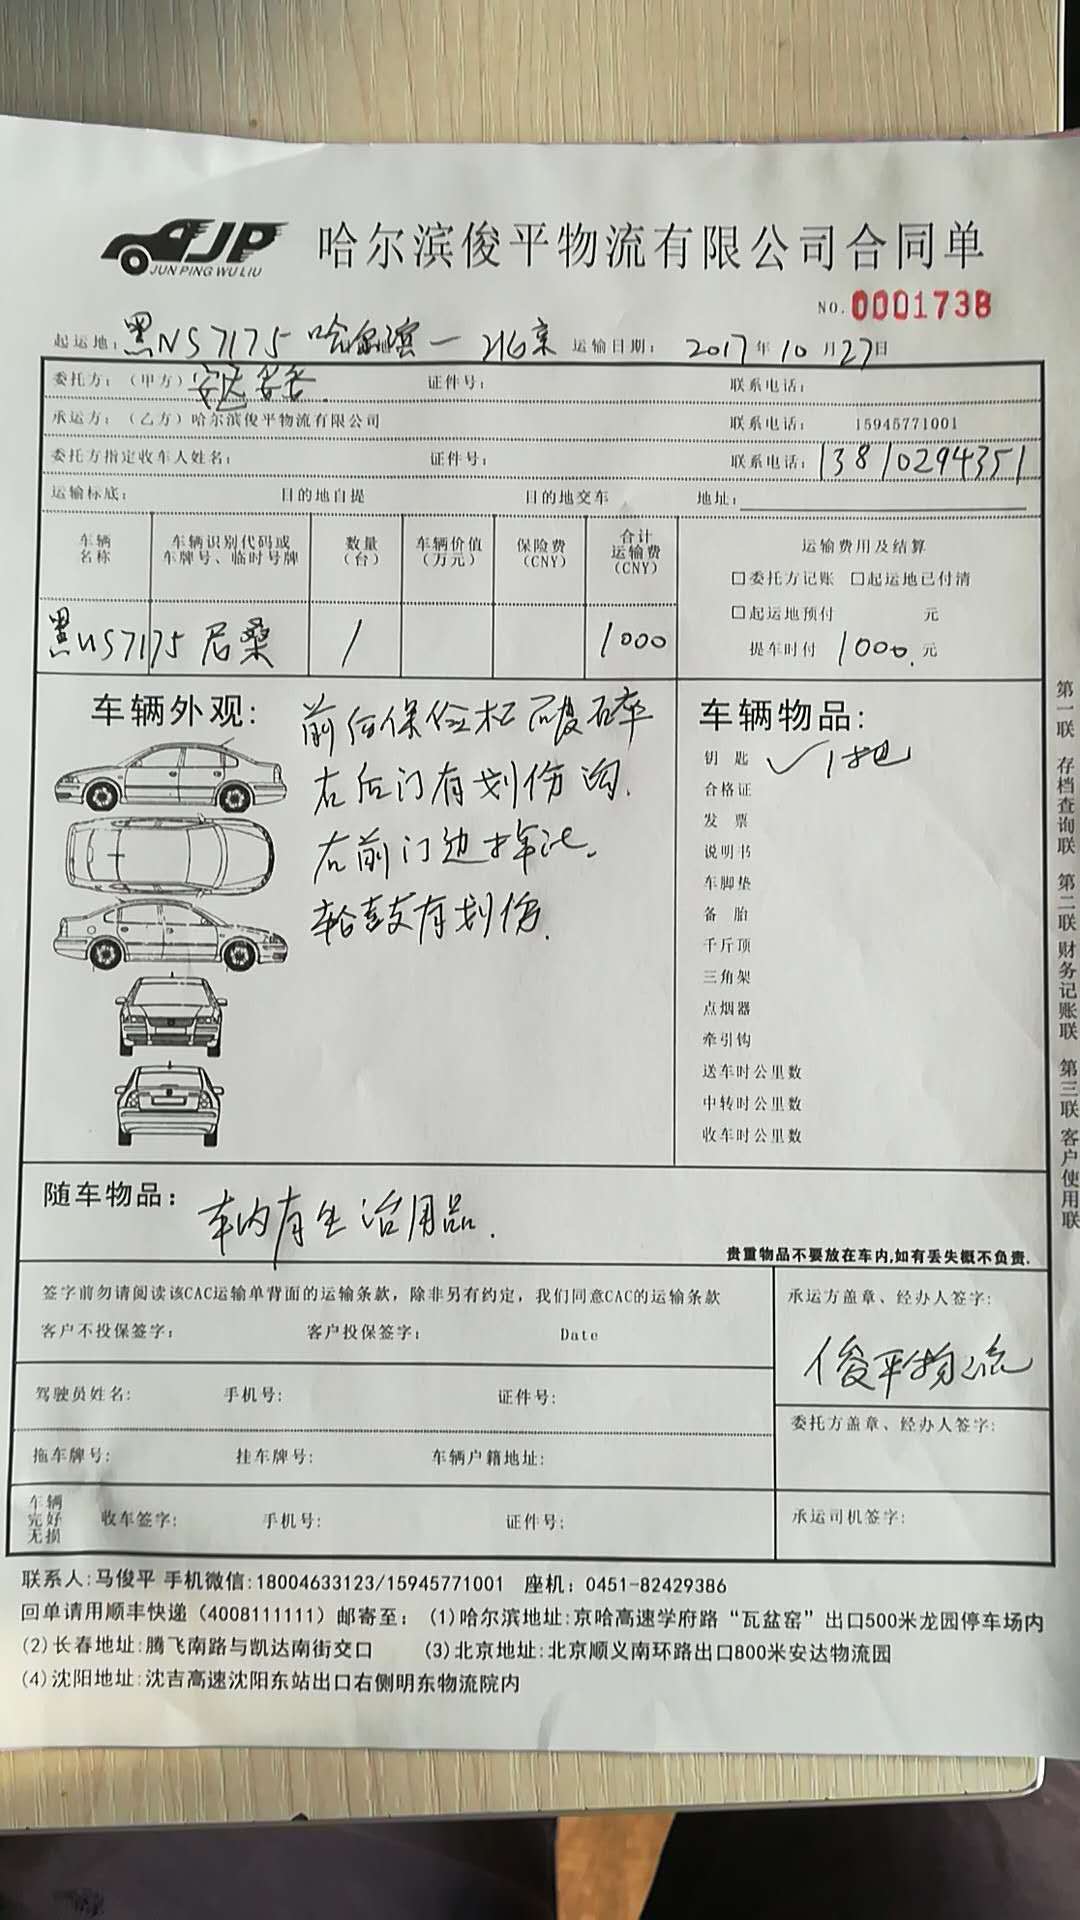 JP
JUN PING WU LIU
哈尔滨俊平物流有限公司合同单
NO. 0001738
起运地: 黑NS7175 哈尔滨一北京 运输日期: 2017年10月27日
委托方:（甲方）安达 证件号: 联系电话:
承运方:（乙方）哈尔滨俊平物流有限公司 联系电话: 15945771001
委托方指定收车人姓名: 证件号: 联系电话: 13810294351
运输标底: 目的地自提 目的地交车 地址:
车辆名称 车辆识别代码或车牌号、临时号牌 数量（台） 车辆价值（万元） 保险费（CNY） 合计运输费（CNY） 运输费用及结算
□委托方记账 □起运地已付清
□起运地预付 元
黑NS7175 尼桑 1 1000 提车时付 1000.元
车辆外观: 前后保险杠破碎
右后门有划伤沟.
右前门边掉漆.
轮鼓有划伤.
车辆物品:
钥匙 ✓1把
合格证
发票
说明书
车脚垫
备胎
千斤顶
三角架
点烟器
牵引钩
送车时公里数
中转时公里数
收车时公里数
第一联 存档查询联 第二联 财务记账联 第三联 客户使用联
随车物品: 车内有生活用品.
贵重物品不要放在车内,如有丢失概不负责.
签字前勿请阅读该CAC运输单背面的运输条款，除非另有约定，我们同意CAC的运输条款
客户不投保签字: 客户投保签字: Date
承运方盖章、经办人签字:
俊平物流
驾驶员姓名: 手机号: 证件号:
委托方盖章、经办人签字:
拖车牌号: 挂车牌号: 车辆户籍地址:
车辆完好无损 收车签字: 手机号: 证件号:
承运司机签字:
联系人:马俊平 手机微信:18004633123/15945771001 座机: 0451-82429386
回单请用顺丰快递（4008111111）邮寄至: (1)哈尔滨地址:京哈高速学府路“瓦盆窑”出口500米龙园停车场内
(2)长春地址:腾飞南路与凯达南街交口 (3)北京地址:北京顺义南环路出口800米安达物流园
(4)沈阳地址:沈吉高速沈阳东站出口右侧明东物流院内